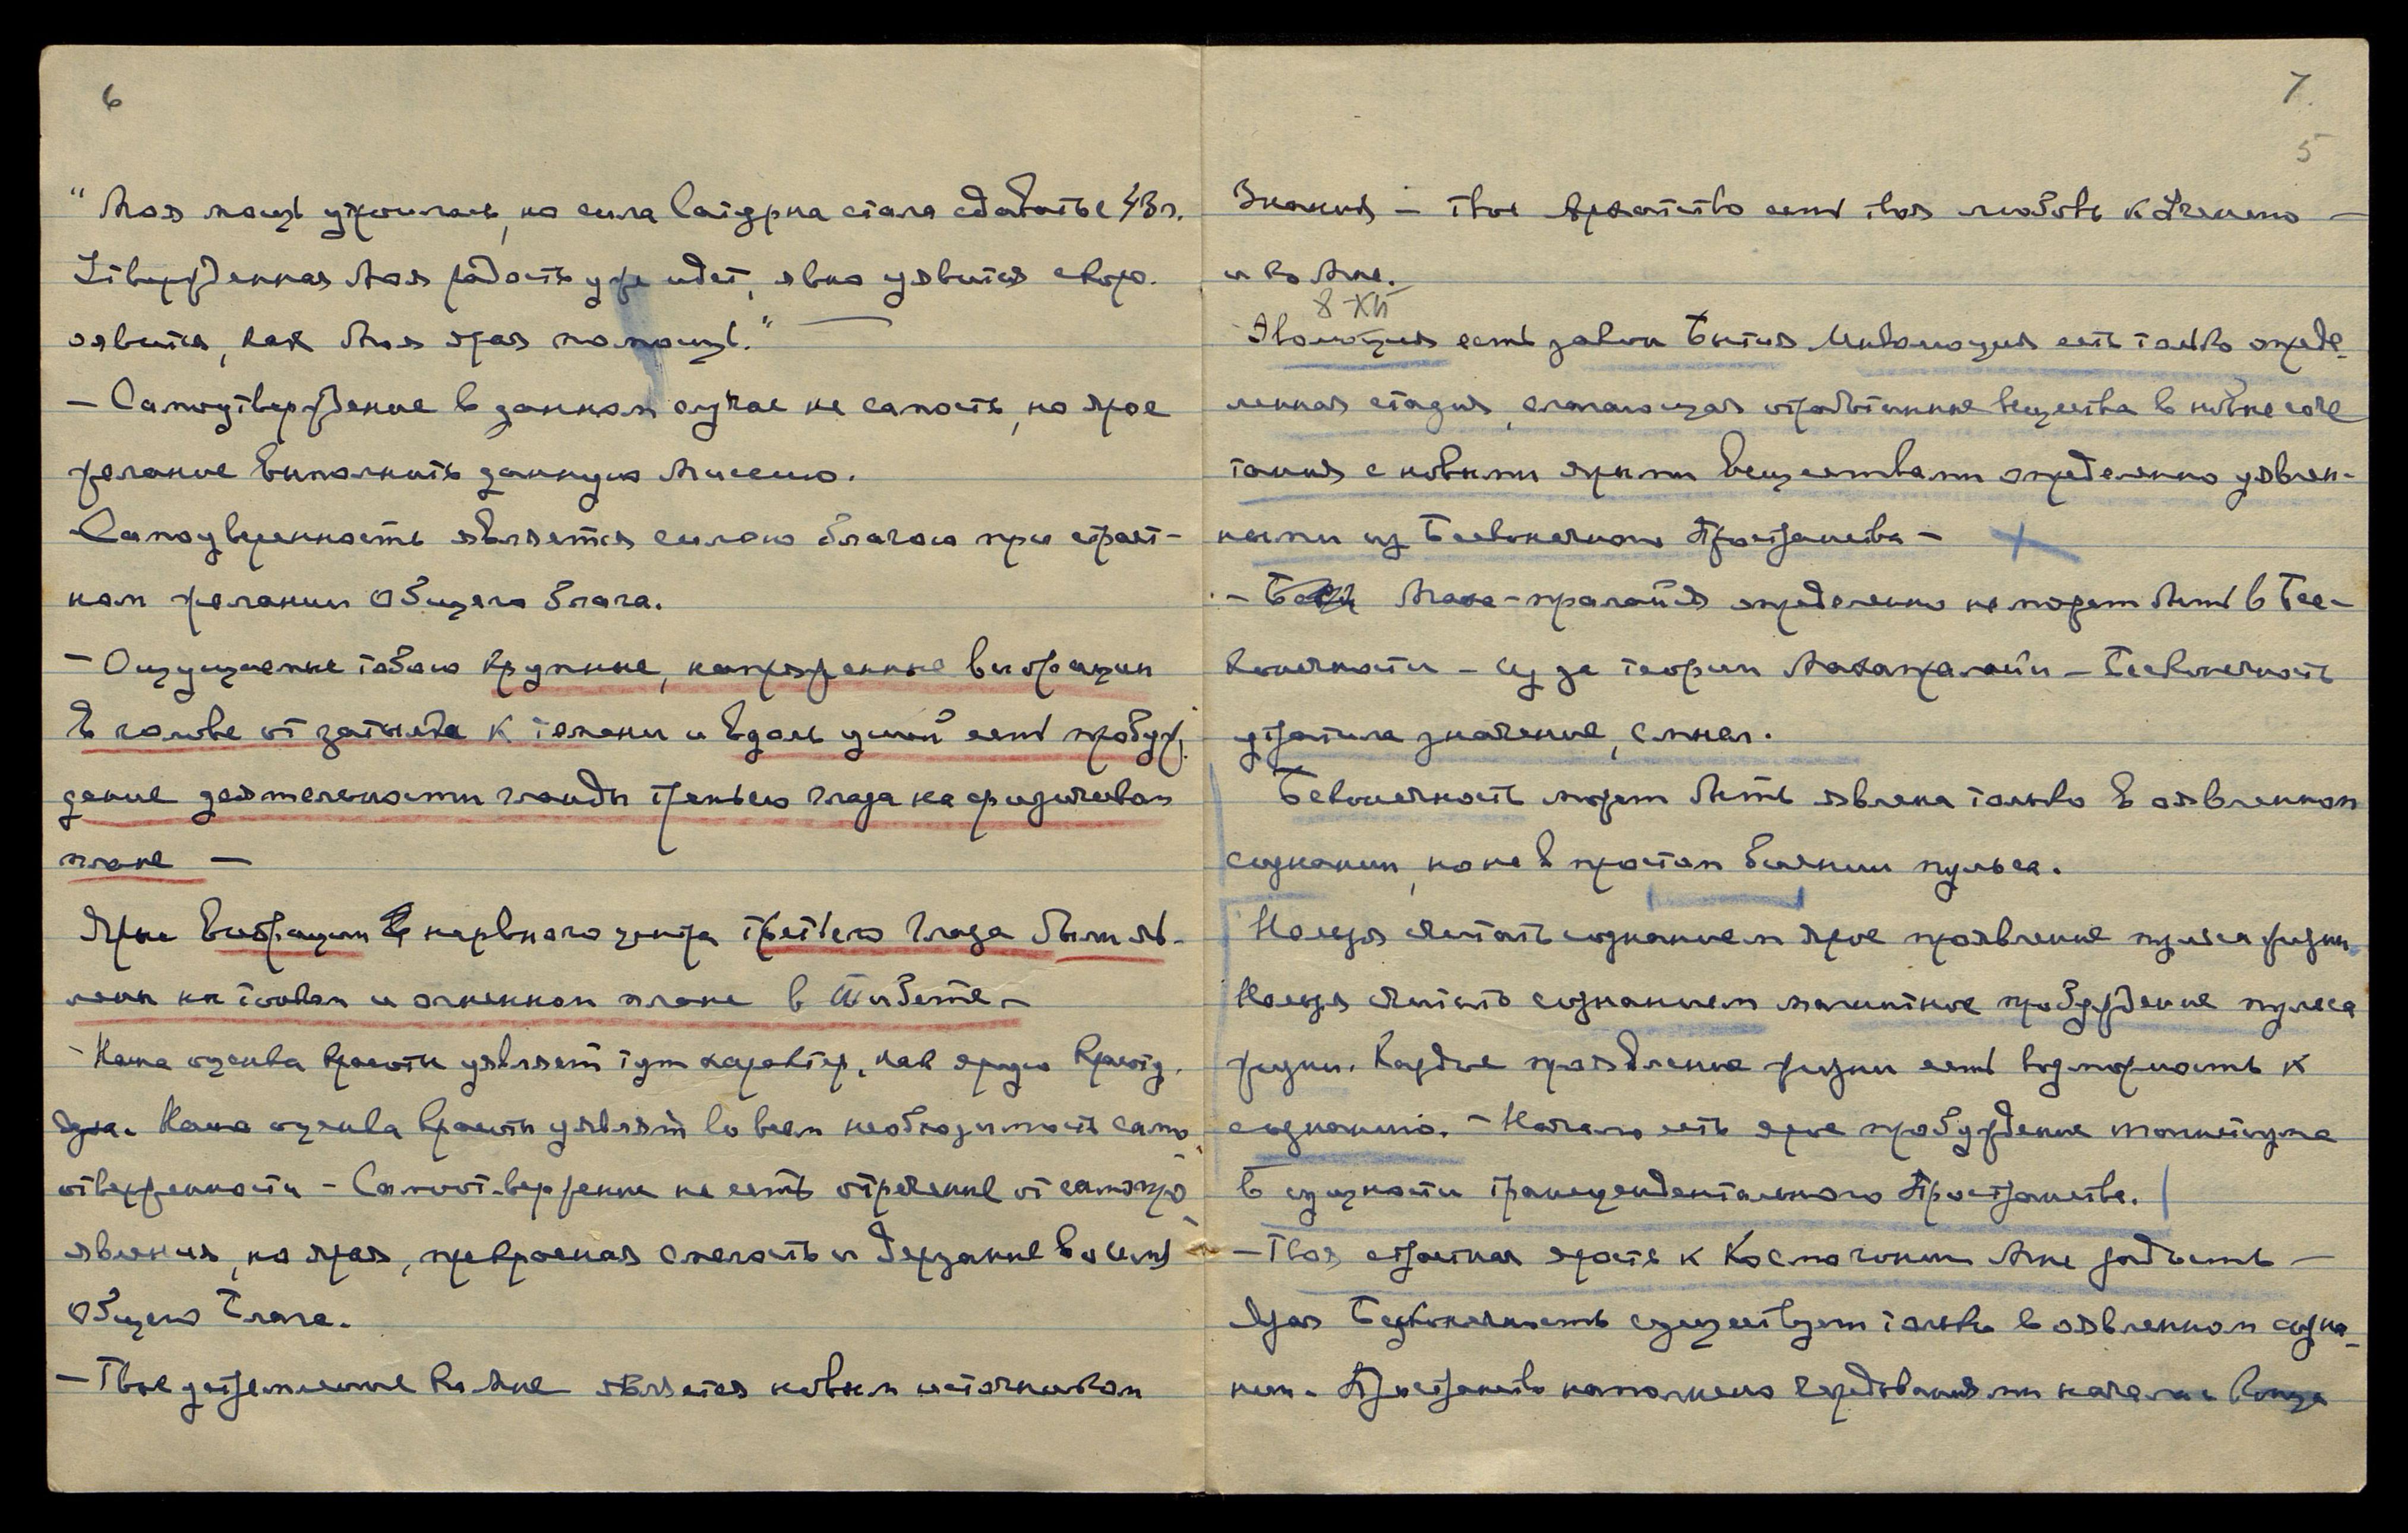 6
"Моя мощь утроилась, но сила Сатурна стала сдавать с 43 г.
Утвержденная Моя радость уже идет, явно уявится скоро.
оявится, как Моя ярая помощь."
— Самоутверждение в данном случае не самость, но ярое
желание выполнить данную Миссию.
Самоуверенность является силою благою при страст-
ном желании Общего блага.
— Ощущаемые тобою крупные, напряженные вибрации
в голове от затылка к темени и вдоль ушей есть пробуж-
дение деятельности гланды третьего глаза на физическом
плане —
Ярые вибрации нервного центра третьего глаза были яв-
лены на тонком и огненном плане в Тибете —
Наша оценка красоты уявляет тут характер, как ярую
Наша оценка красоты уявляет во всем необходимость само-
отверженности — Самоотвержение не есть отречение от самопро-
явления, но ярая, прекрасная смелость и дерзание во имя
Общего Блага.
— Твое устремление ко Мне является новым источником
7.
5
Знания — твое богатство есть твоя любовь к Учению —
и ко Мне.
8 XII
Эволюция есть закон Бытия Инволюция есть только опреде-
ленная стадия, слагающая отработанные вещества в новые соче
тания с новыми ярыми веществами определенно уявлен-
ными из Бесконечного Пространства —
— Маха-пралайя определенно не может быть в Бес-
конечности — из за теории Махапралайи — Бесконечность
утратила значение, смысл.
Бесконечность может быть явлена только в оявленном
сознании, но не в простом биении пульса.
Нельзя считать сознанием ярое проявление пульса жизни.
Нельзя считать сознанием магнитное пробуждение пульса
жизни. Каждое проявление жизни есть возможность к
сознанию. — Начало есть ярое пробуждение магнетизма
в сущности трансцендентального Пространства.
— Твоя страстная ярость к Космогонии Мне радость —
Ярая Безконечность существует только в оявленном созна-
нии. Пространство наполнено чередованиями начала и конца